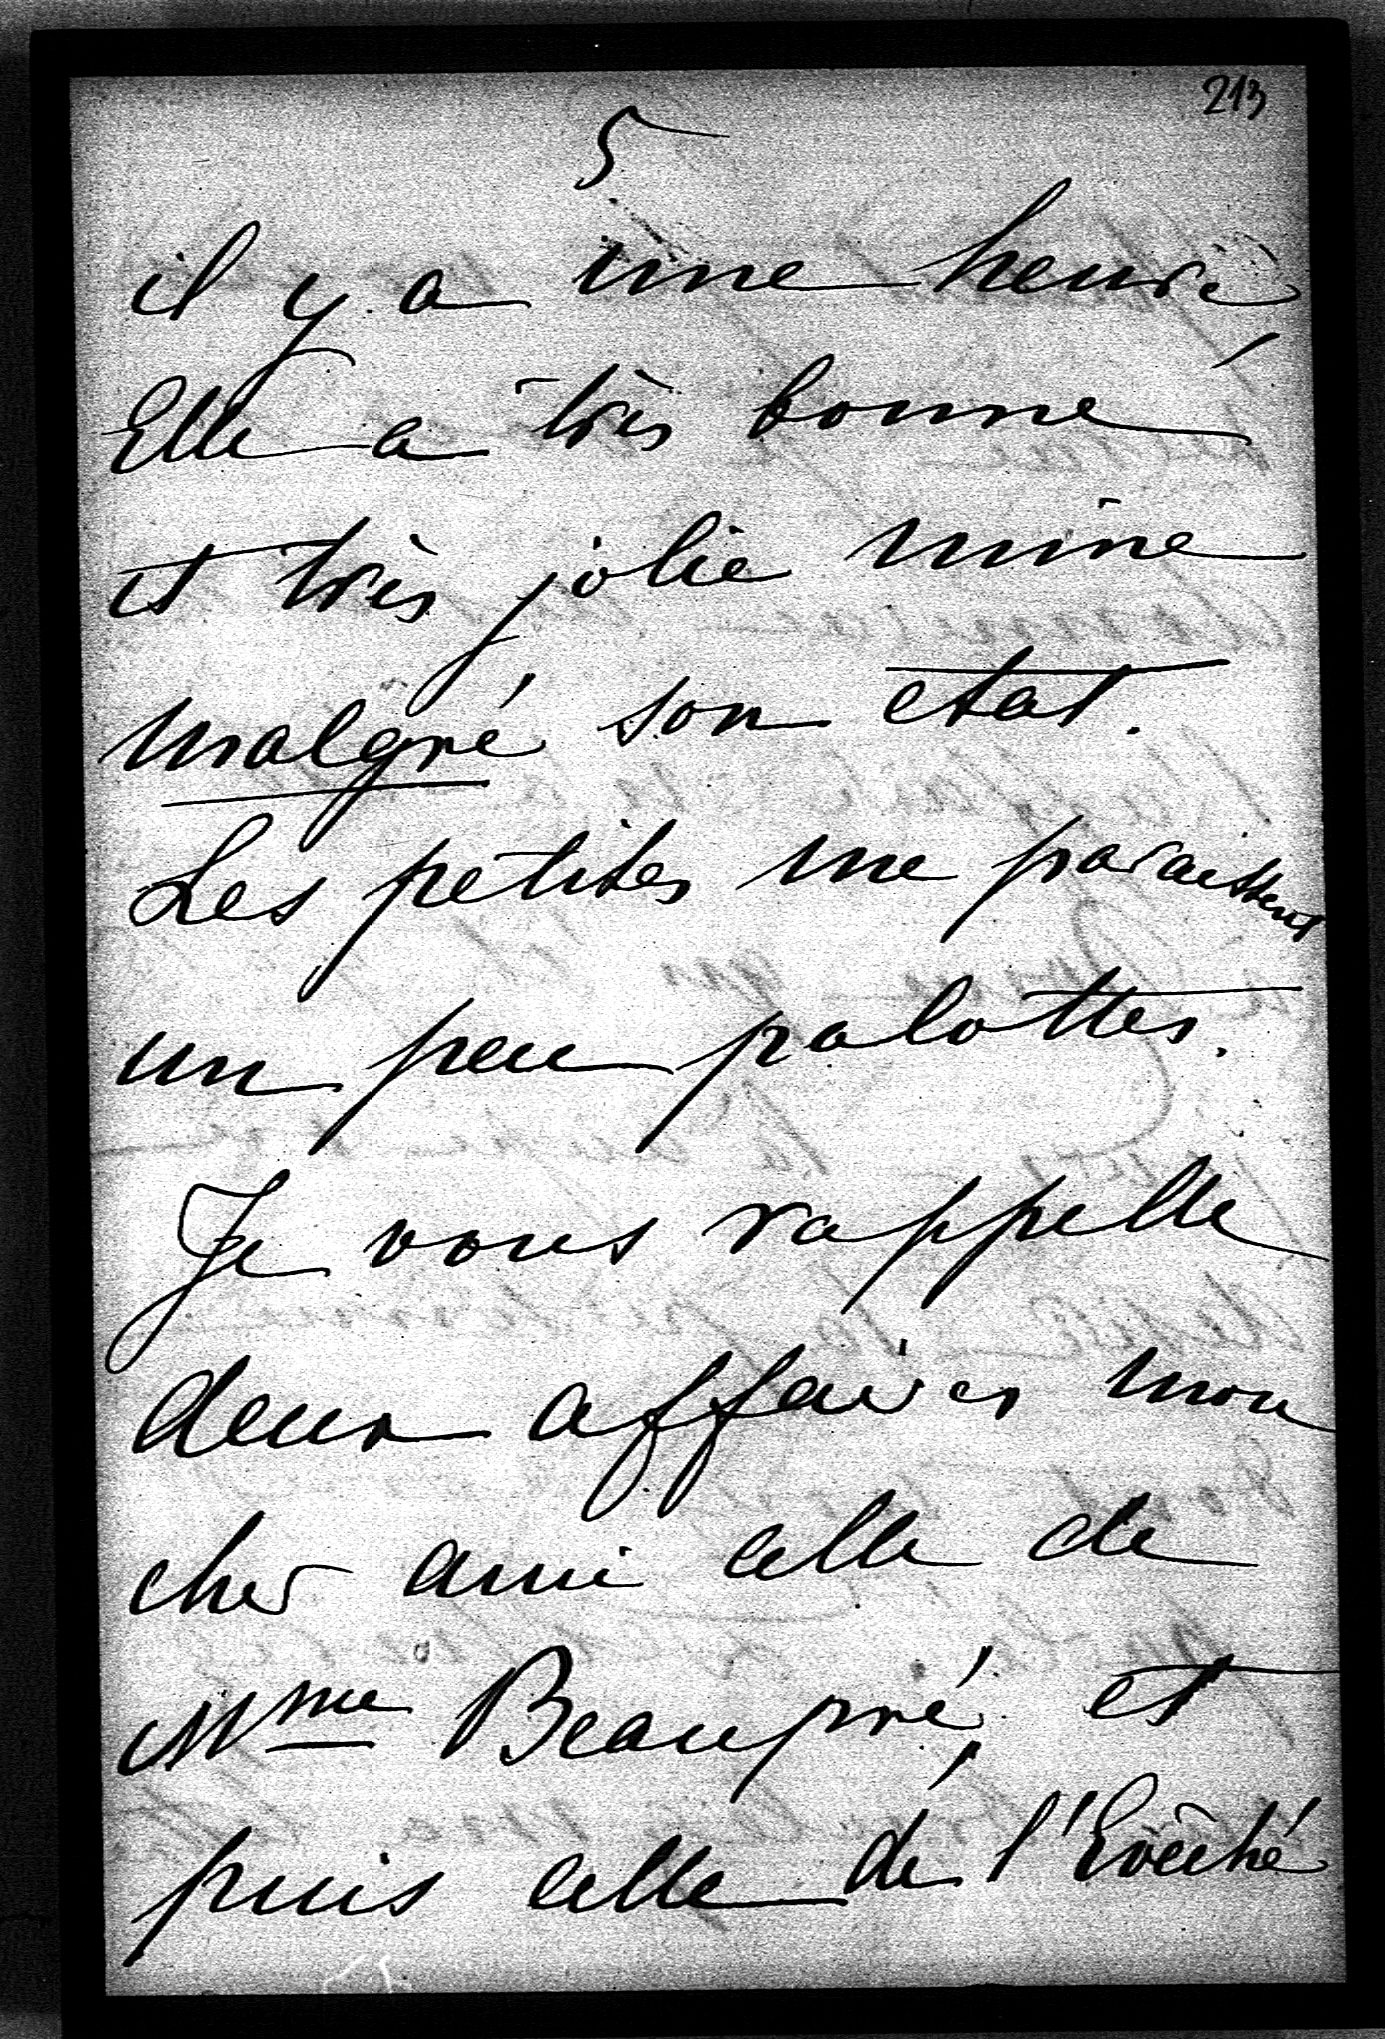 213
5
il y a une heure
Elle a très bonne
et très jolie mine
malgré son etat.
Les petites me paraissent
un peu palottes.
Je vous rappelle
deux affaires mon
cher ami celle de
Mme Beaupré, et
puis celle de l'Evêché